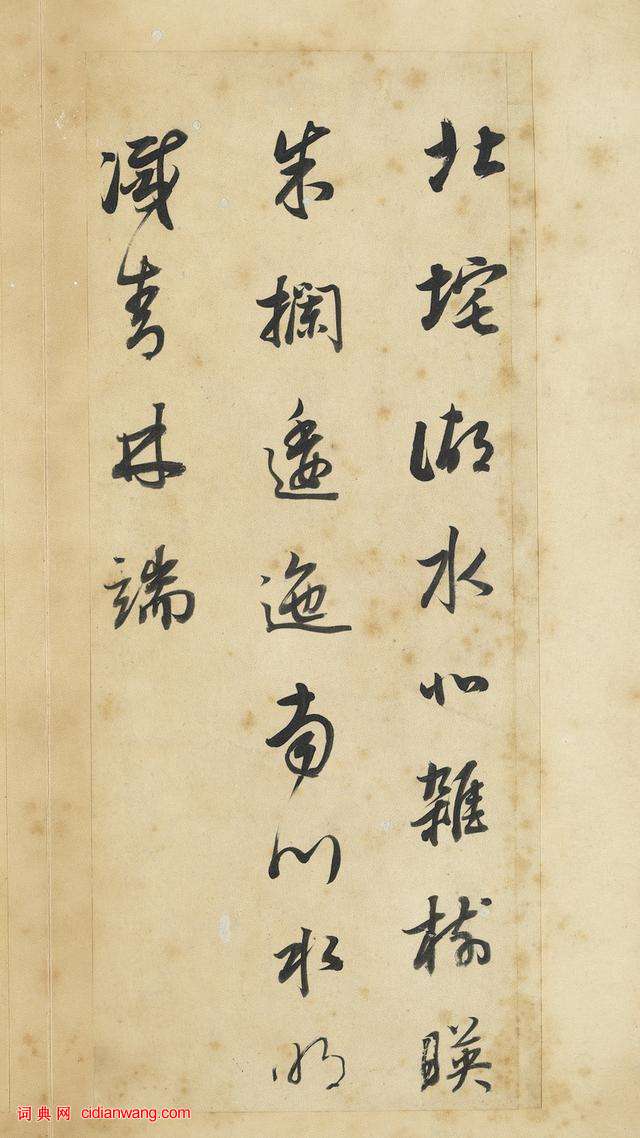 北垞湖水北雜樹暎
朱欄逶迤南川水明
滅青林端
词典网 cidianwang.com